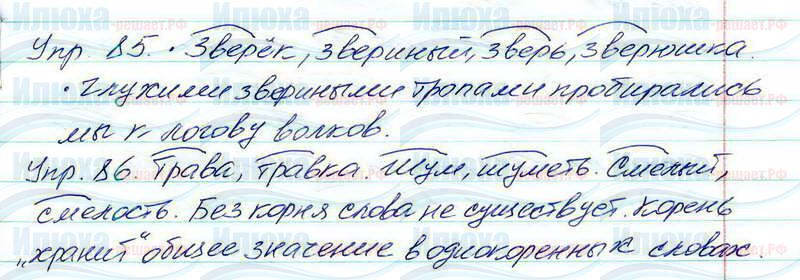 Упр. 85. • Зверёк, звериный, зверь, зверюшка.
• Глухими звериными тропами пробирались
мы к логову волков.
Упр. 86. Трава, травка. Шум, шуметь. Смелый,
смелость. Без корня слова не существует. Корень
„хранит“ общее значение в однокоренных словах.